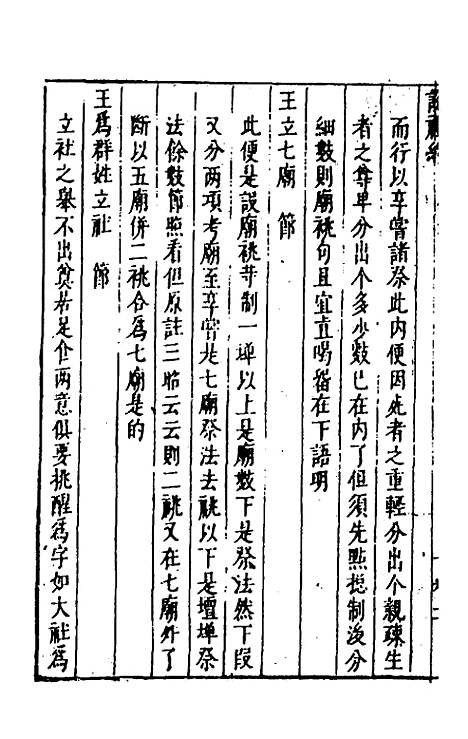 而行以享嘗諸祭此内便因死者之重輕分出个親疎生
者之尊卑分出个多少數已在内了但須先點揔制後分
細數則廟祧句且宜直喝留在下語明
王立七廟　節
此便是設廟祧等制一墠以上是廟數下是祭法然下段
又分兩項考廟至享嘗是七廟祭法去祧以下是壇墠祭
法餘數節照看但原註三昭云云則二祧又在七廟外了
斷以五廟併二祧合爲七廟是的
王爲群姓立社　節
立社之舉不出奠居足食兩意俱要挑醒爲字如大社爲